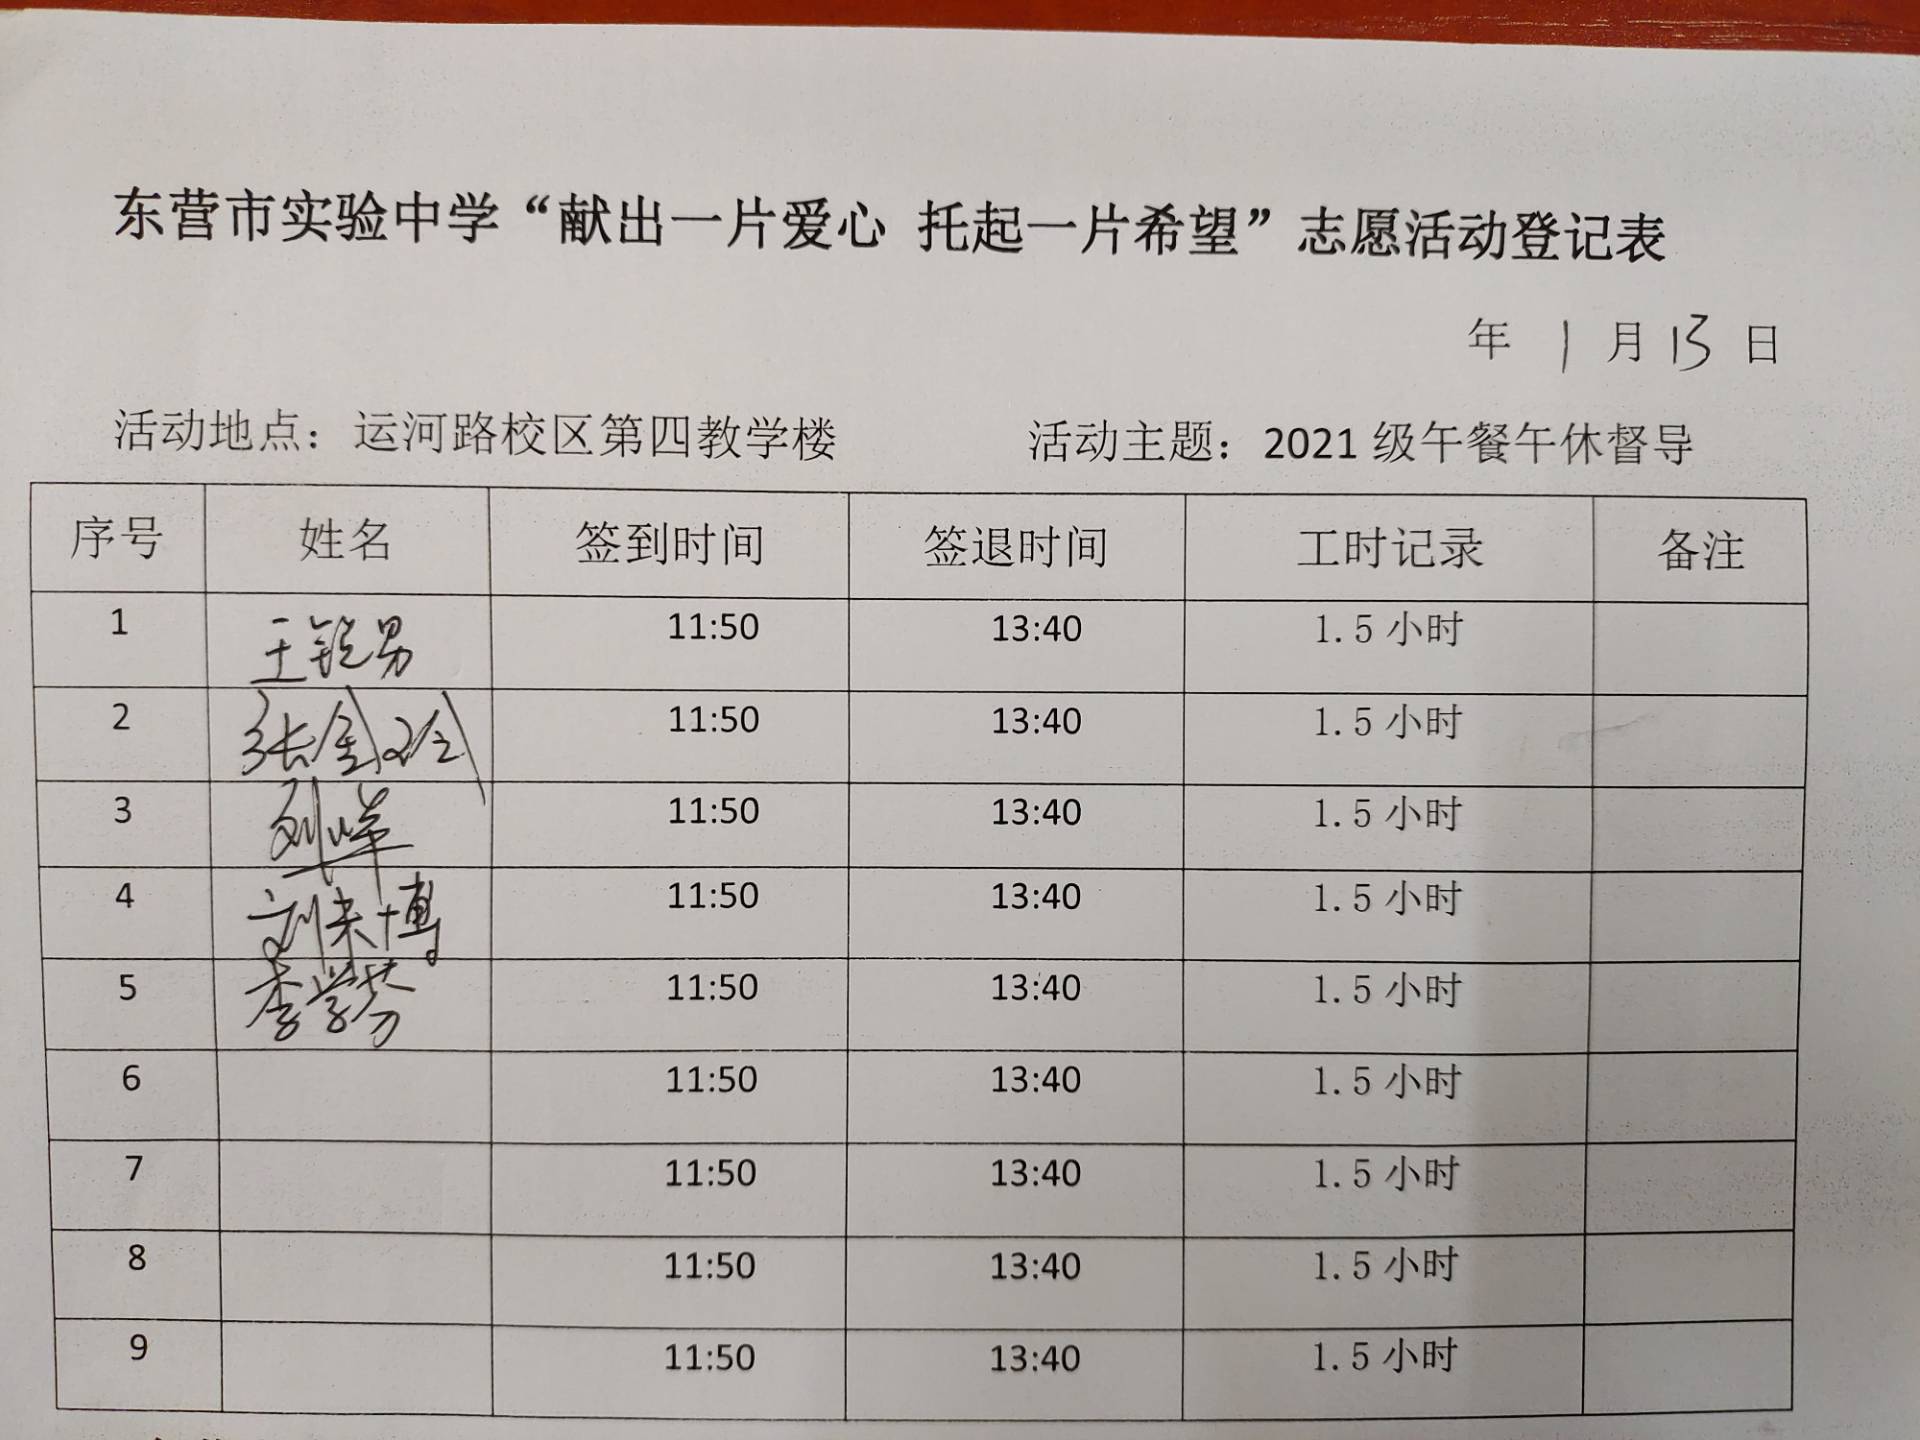 东营市实验中学“献出一片爱心 托起一片希望”志愿活动登记表
年 1 月 13 日
活动地点：运河路校区第四教学楼 活动主题：2021 级午餐午休督导
序号 姓名 签到时间 签退时间 工时记录 备注
1 王锐男 11:50 13:40 1.5 小时
2 张金玲 11:50 13:40 1.5 小时
3 刘峰 11:50 13:40 1.5 小时
4 刘荣博 11:50 13:40 1.5 小时
5 李学芬 11:50 13:40 1.5 小时
6 11:50 13:40 1.5 小时
7 11:50 13:40 1.5 小时
8 11:50 13:40 1.5 小时
9 11:50 13:40 1.5 小时